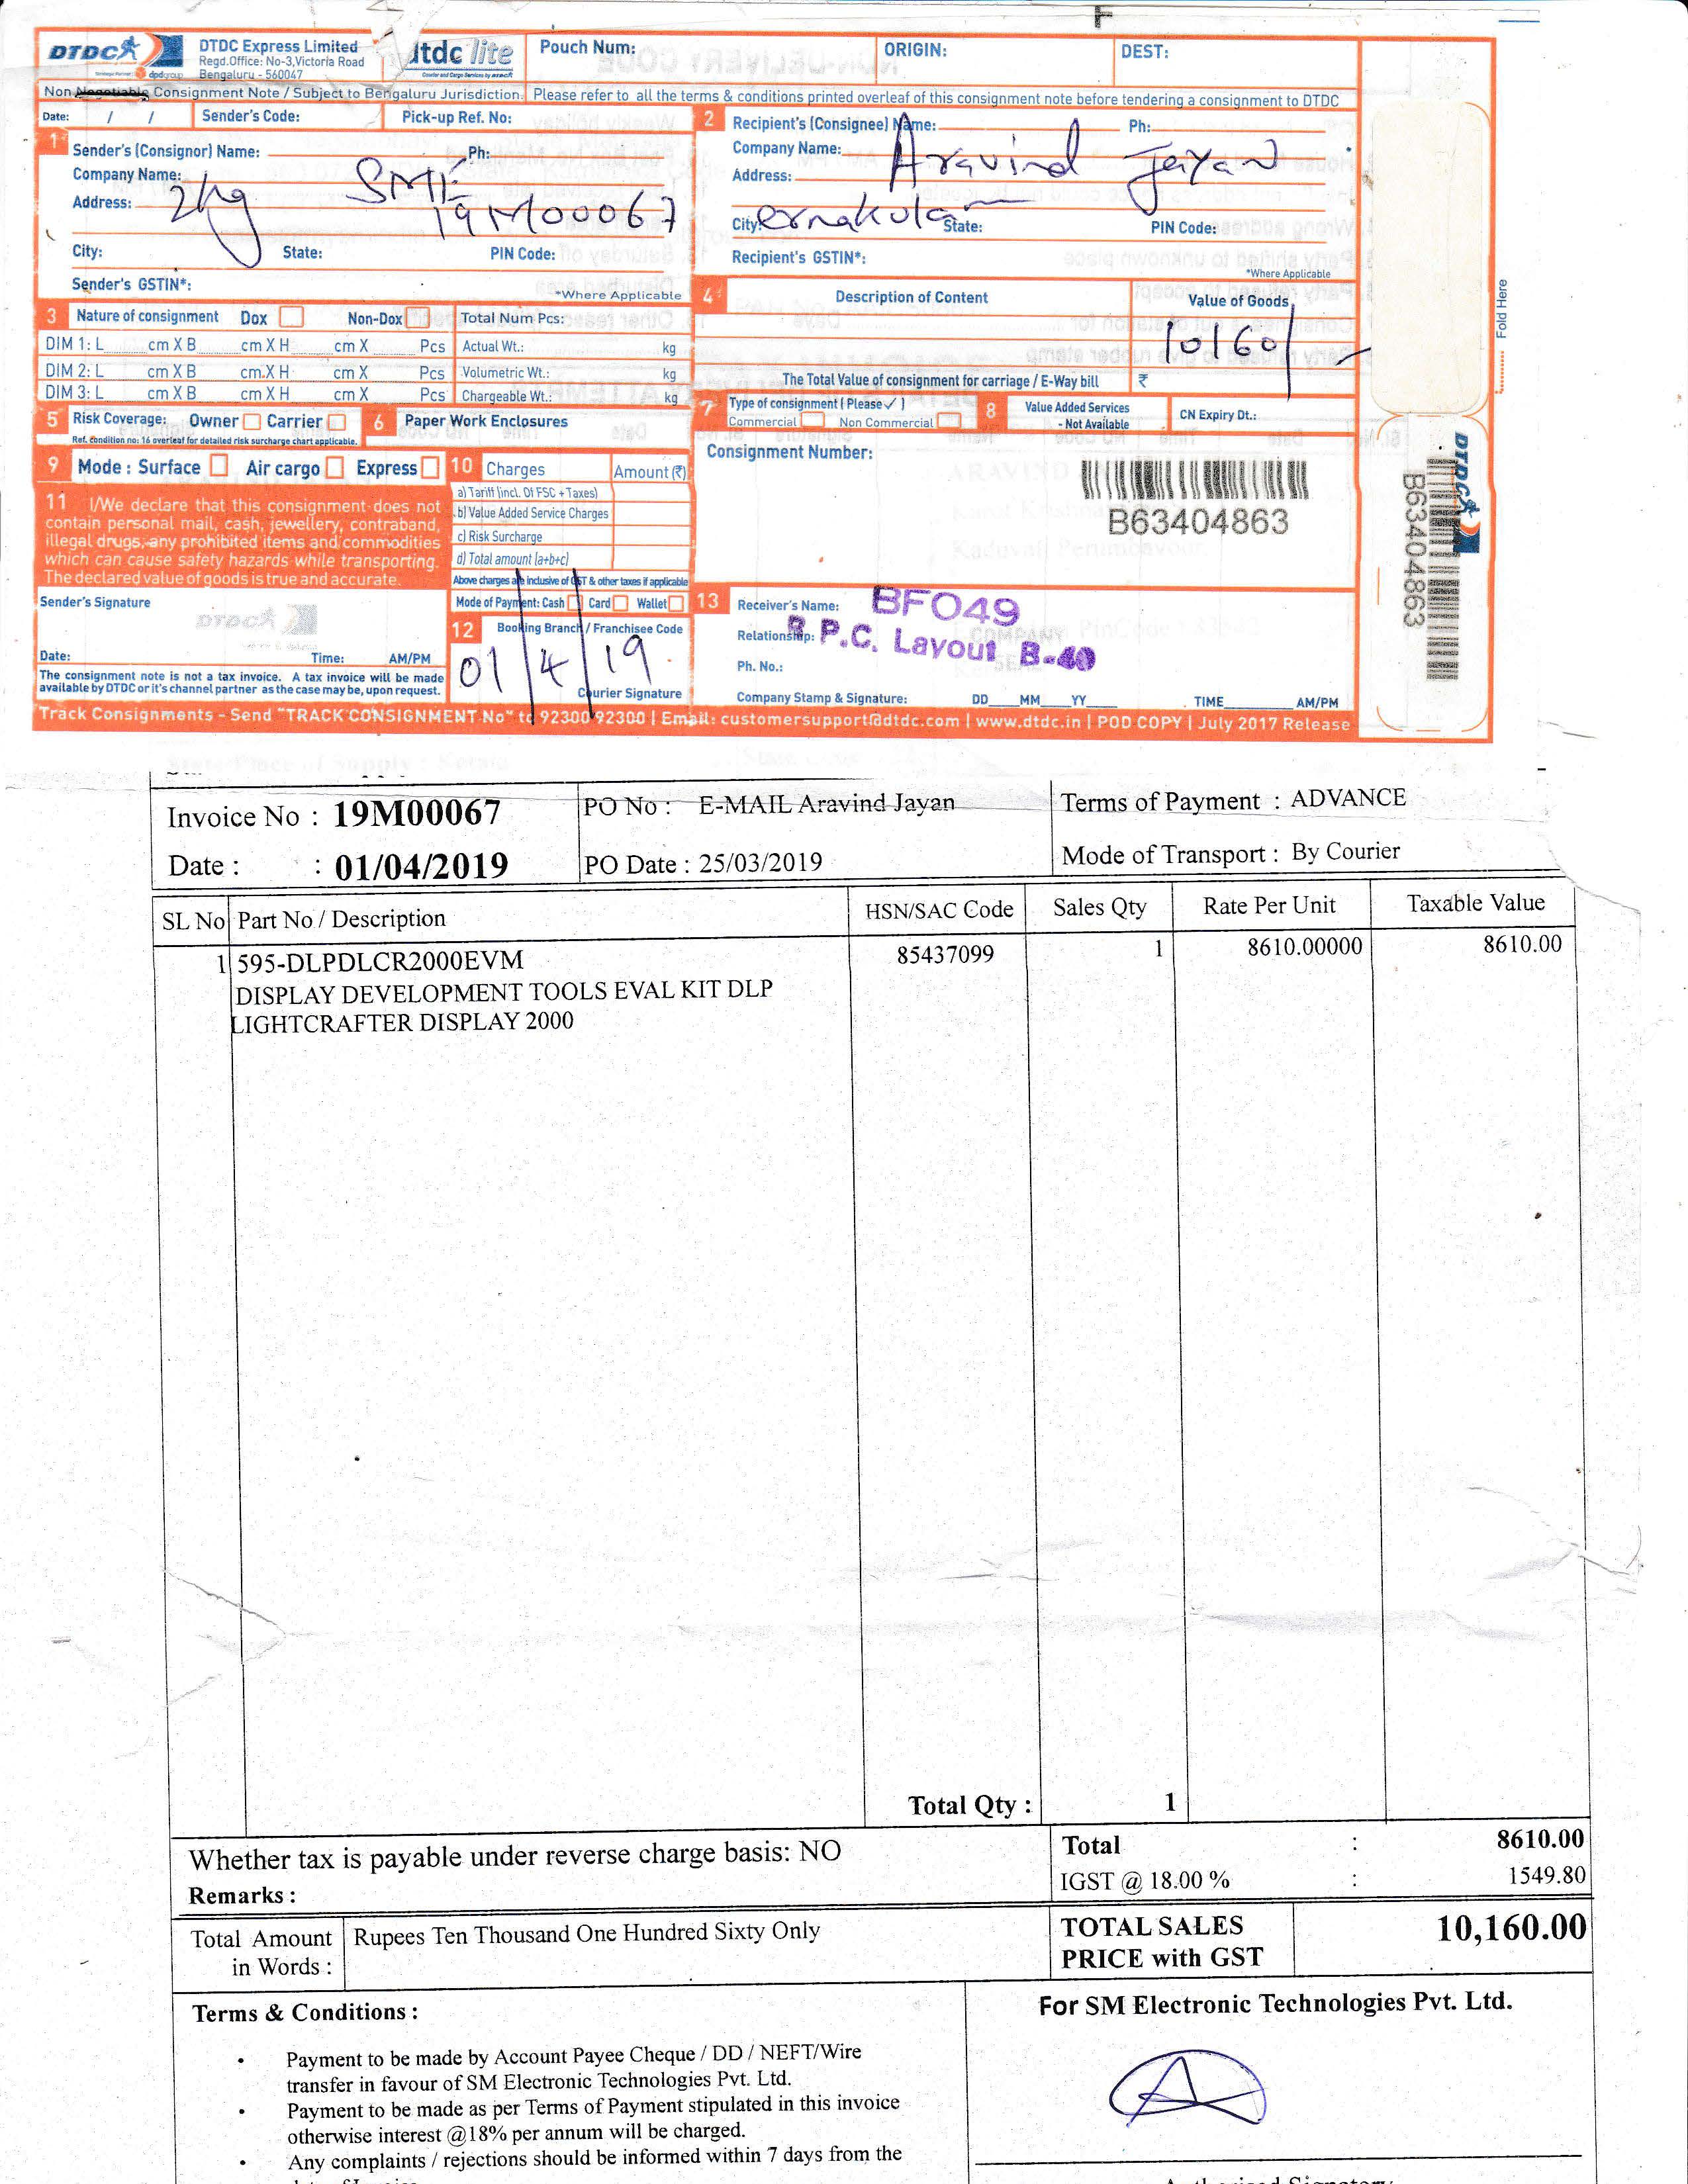 DTDC
dpdgroup
DTDC Express Limited
Regd.Office: No-3,Victoria Road
Bengaluru - 560047
dtdc lite
Pouch Num:
ORIGIN:
DEST:
Non Negotiable Consignment Note / Subject to Bengaluru Jurisdiction.
Please refer to all the terms & conditions printed overleaf of this consignment note before tendering a consignment to DTDC
Date: / /
Sender's Code:
Pick-up Ref. No:
1
Sender's (Consignor) Name:
Ph:
Company Name: SME
Address: 2kg 19M00067
City:
State:
PIN Code:
Sender's GSTIN*:
*Where Applicable
2
Recipient's (Consignee) Name:
Ph:
Company Name: Aravind Jayan
Address:
City: ernakulam
State:
PIN Code:
Recipient's GSTIN*:
*Where Applicable
3 Nature of consignment Dox Non-Dox Total Num Pcs:
DIM 1: L cm X B cm X H cm X Pcs Actual Wt.: kg
DIM 2: L cm X B cm X H cm X Pcs Volumetric Wt.: kg
DIM 3: L cm X B cm X H cm X Pcs Chargeable Wt.: kg
4 Description of Content
Value of Goods
10160/-
The Total Value of consignment for carriage / E-Way bill ₹
5 Risk Coverage: Owner Carrier
Ref. Condition no: 16 overleaf for detailed risk surcharge chart applicable.
6 Paper Work Enclosures
7 Type of consignment ( Please ✓ )
Commercial Non Commercial
8 Value Added Services
- Not Available
CN Expiry Dt.:
9 Mode : Surface Air cargo Express
10 Charges Amount (₹)
a) Tariff (incl. Of FSC + Taxes)
b) Value Added Service Charges
c) Risk Surcharge
d) Total amount (a+b+c)
Above charges are inclusive of GST & other taxes if applicable
Mode of Payment: Cash Card Wallet
11 I/We declare that this consignment does not
contain personal mail, cash, jewellery, contraband,
illegal drugs, any prohibited items and commodities
which can cause safety hazards while transporting.
The declared value of goods is true and accurate.
Sender's Signature
DTDC
Date:
Time:
AM/PM
The consignment note is not a tax invoice. A tax invoice will be made
available by DTDC or it's channel partner as the case may be, upon request.
12 Booking Branch / Franchisee Code
01/4/19
Courier Signature
Consignment Number:
B63404863
13 Receiver's Name:
BFO49
Relationship:
R.P.C. Layout B-40
Ph. No.:
Company Stamp & Signature:
DD MM YY
TIME AM/PM
Track Consignments - Send "TRACK CONSIGNMENT No" to 92300 92300 | Email: customersupport@dtdc.com | www.dtdc.in | POD COPY | July 2017 Release
DTDC
B63404863
Fold Here
Invoice No : 19M00067
PO No : E-MAIL Aravind Jayan
Terms of Payment : ADVANCE
Date : : 01/04/2019
PO Date : 25/03/2019
Mode of Transport : By Courier
SL No Part No / Description HSN/SAC Code Sales Qty Rate Per Unit Taxable Value
1 595-DLPDLCR2000EVM 85437099 1 8610.00000 8610.00
DISPLAY DEVELOPMENT TOOLS EVAL KIT DLP
LIGHTCRAFTER DISPLAY 2000
Total Qty : 1
Whether tax is payable under reverse charge basis: NO
Remarks :
Total : 8610.00
IGST @ 18.00 % : 1549.80
Total Amount
in Words :
Rupees Ten Thousand One Hundred Sixty Only
TOTAL SALES
PRICE with GST
10,160.00
Terms & Conditions :
• Payment to be made by Account Payee Cheque / DD / NEFT/Wire
transfer in favour of SM Electronic Technologies Pvt. Ltd.
• Payment to be made as per Terms of Payment stipulated in this invoice
otherwise interest @18% per annum will be charged.
• Any complaints / rejections should be informed within 7 days from the
For SM Electronic Technologies Pvt. Ltd.